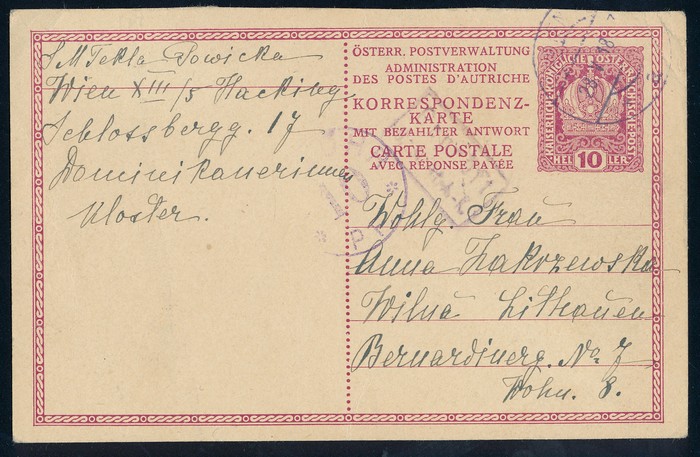 S M Tekla Sowicka
Wien XIII/5 Hacking
Schlossbergg. 17
Dominikanerinnen
Kloster.
ÖSTERR. POSTVERWALTUNG
ADMINISTRATION
DES POSTES D'AUTRICHE
KORRESPONDENZ-
KARTE
MIT BEZAHLTER ANTWORT
CARTE POSTALE
AVEC RÉPONSE PAYÉE
KAISERLICHE KÖNIGLICHE ÖSTERREICHISCHE POST
HEL 10 LER
Wohlg. Frau
Anna Zakrzewska
Wilna Lithauen
Bernardinerg. No 7
Wohn. 8.